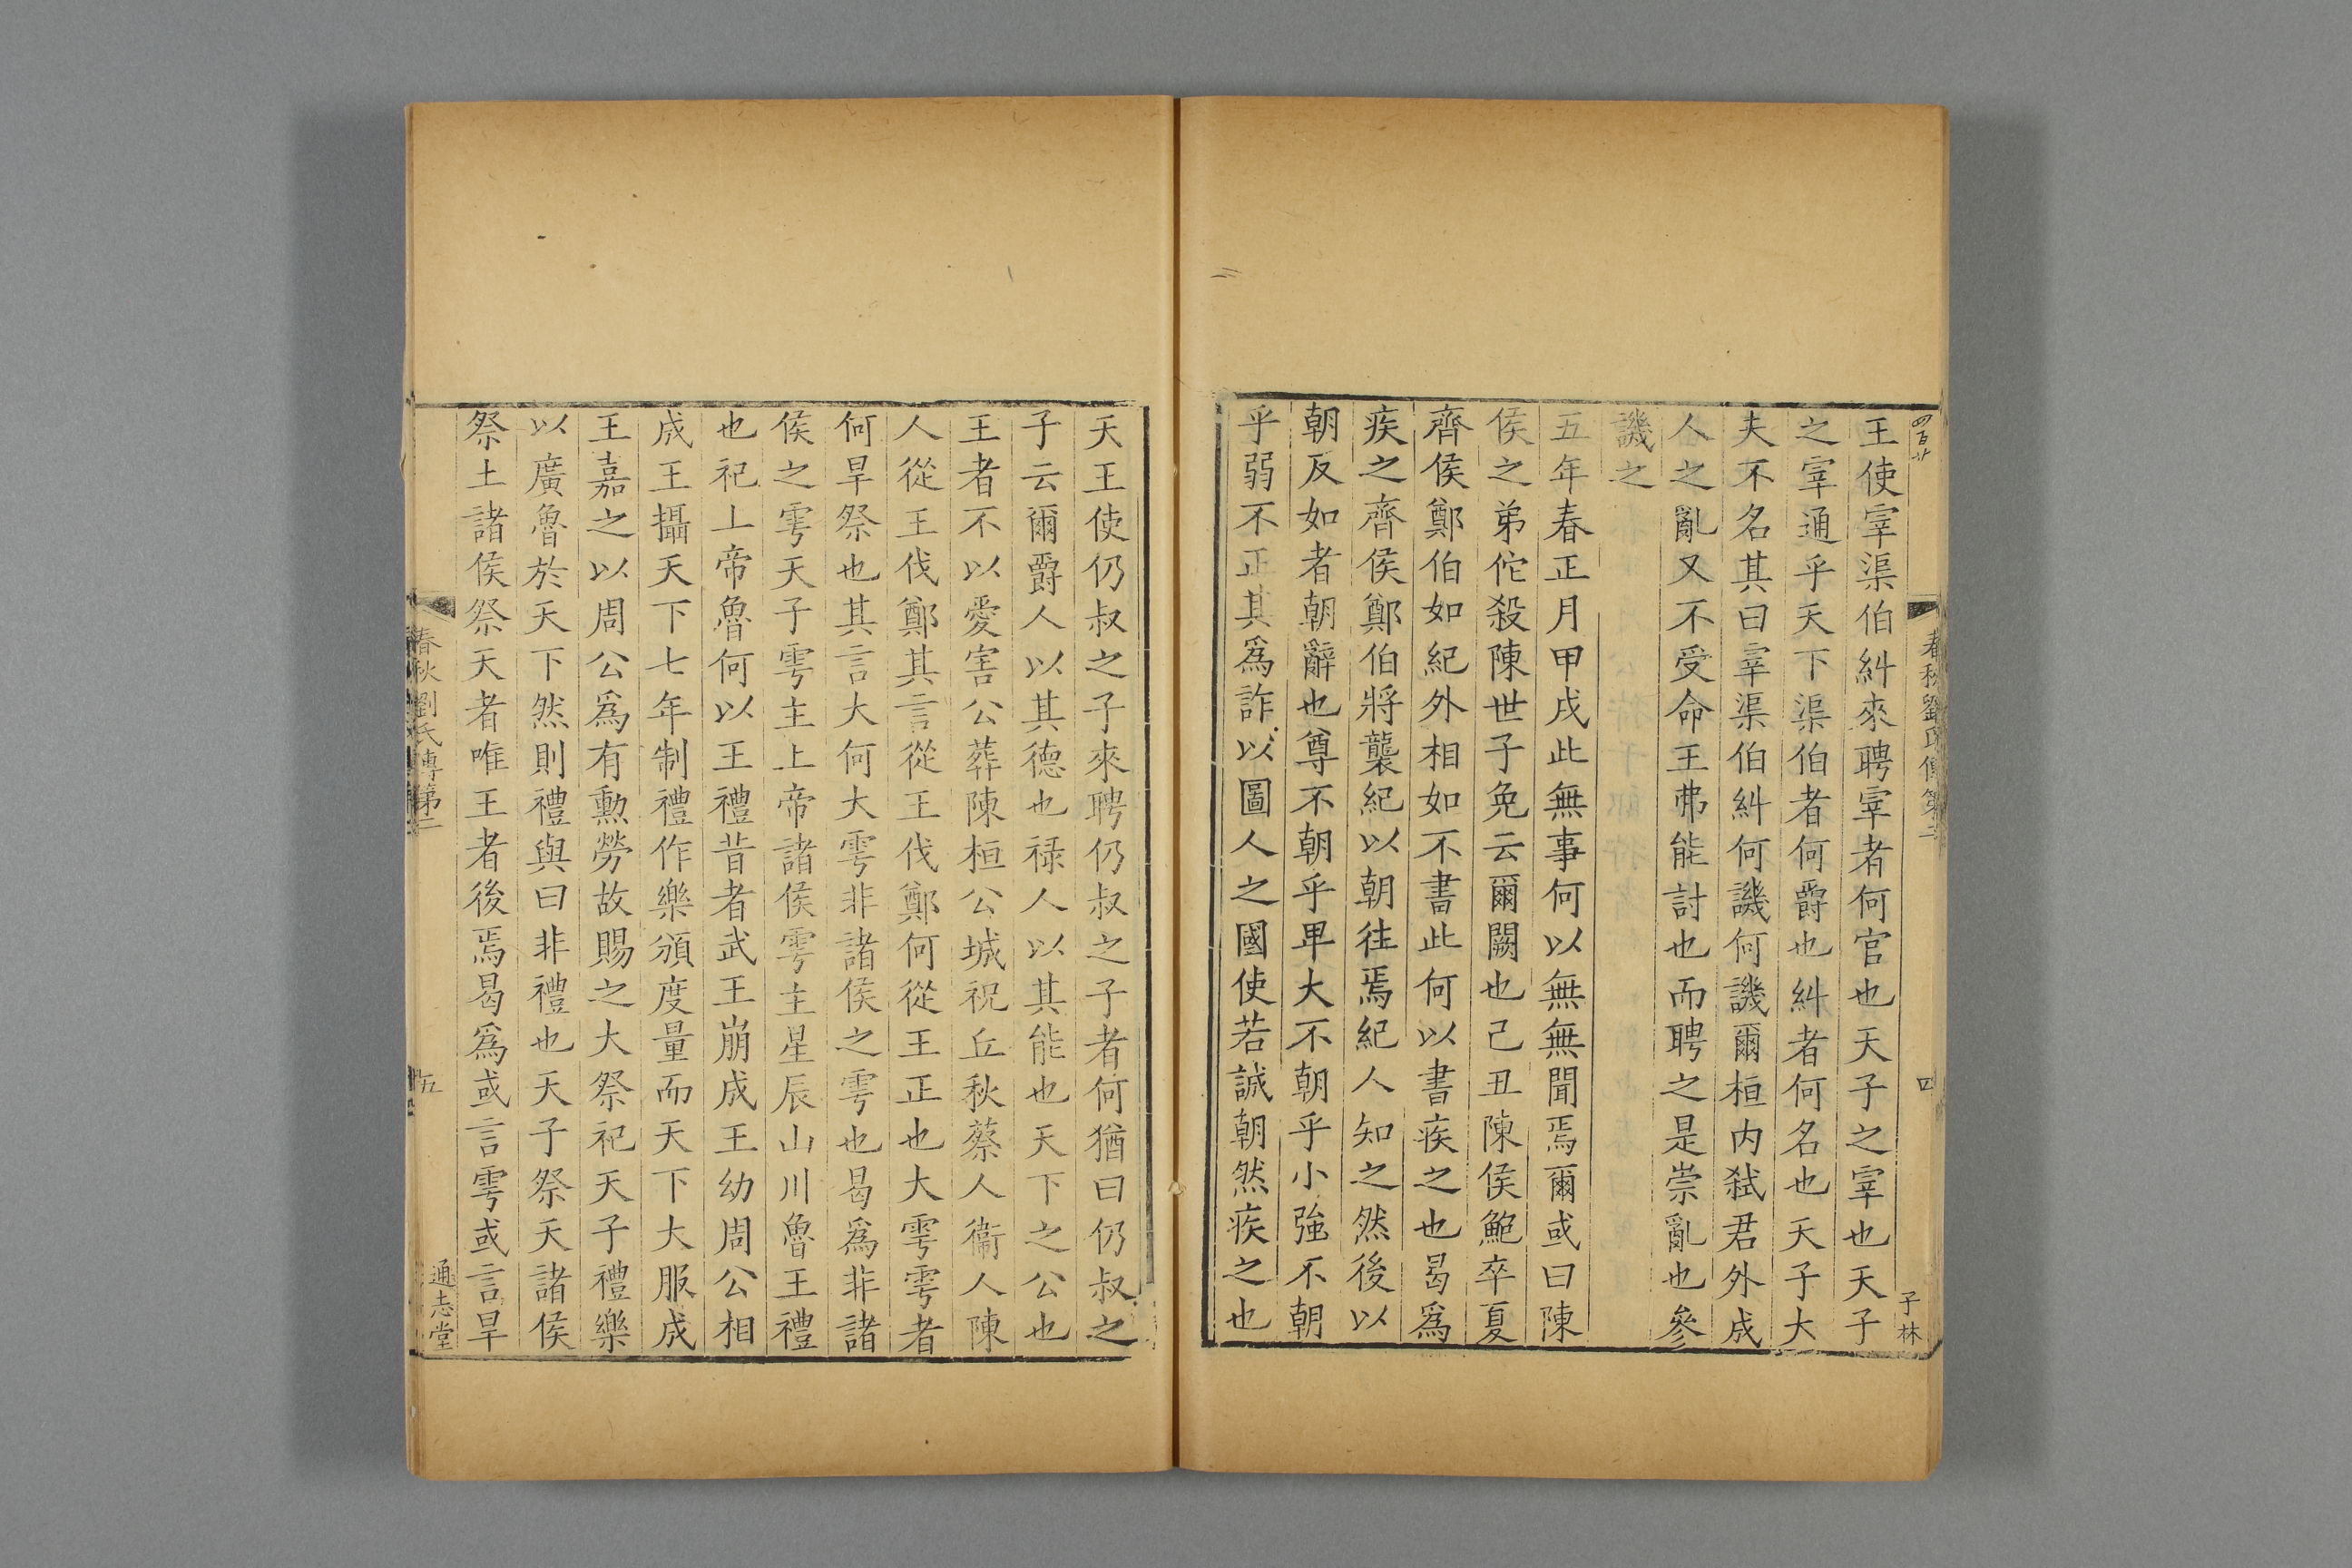 四百廿
春秋劉氏傳第二
四
子林
王使宰渠伯糾來聘宰者何官也天子之宰也天子
之宰通乎天下渠伯者何爵也糾者何名也天子大
夫不名其曰宰渠伯糾何譏何譏爾桓内弑君外成
人之亂又不受命王弗能討也而聘之是崇亂也參
譏之
五年春正月甲戌此無事何以無無聞焉爾或曰陳
侯之弟佗殺陳世子免云爾闕也己丑陳侯鮑卒夏
齊侯鄭伯如紀外相如不書此何以書疾之也曷爲
疾之齊侯鄭伯將襲紀以朝往焉紀人知之然後以
朝反如者朝辭也尊不朝乎卑大不朝乎小強不朝
乎弱不正其爲詐以圖人之國使若誠朝然疾之也
天王使仍叔之子來聘仍叔之子者何猶曰仍叔之
子云爾爵人以其德也禄人以其能也天下之公也
王者不以愛害公葬陳桓公城祝丘秋蔡人衞人陳
人從王伐鄭其言從王伐鄭何從王正也大雩雩者
何旱祭也其言大何大雩非諸侯之雩也曷爲非諸
侯之雩天子雩主上帝諸侯雩主星辰山川魯王禮
也祀上帝魯何以王禮昔者武王崩成王幼周公相
成王攝天下七年制禮作樂頒度量而天下大服成
王嘉之以周公爲有勳勞故賜之大祭祀天子禮樂
以廣魯於天下然則禮與曰非禮也天子祭天諸侯
祭土諸侯祭天者唯王者後焉曷爲或言雩或言旱
春秋劉氏傳第二
五
通志堂